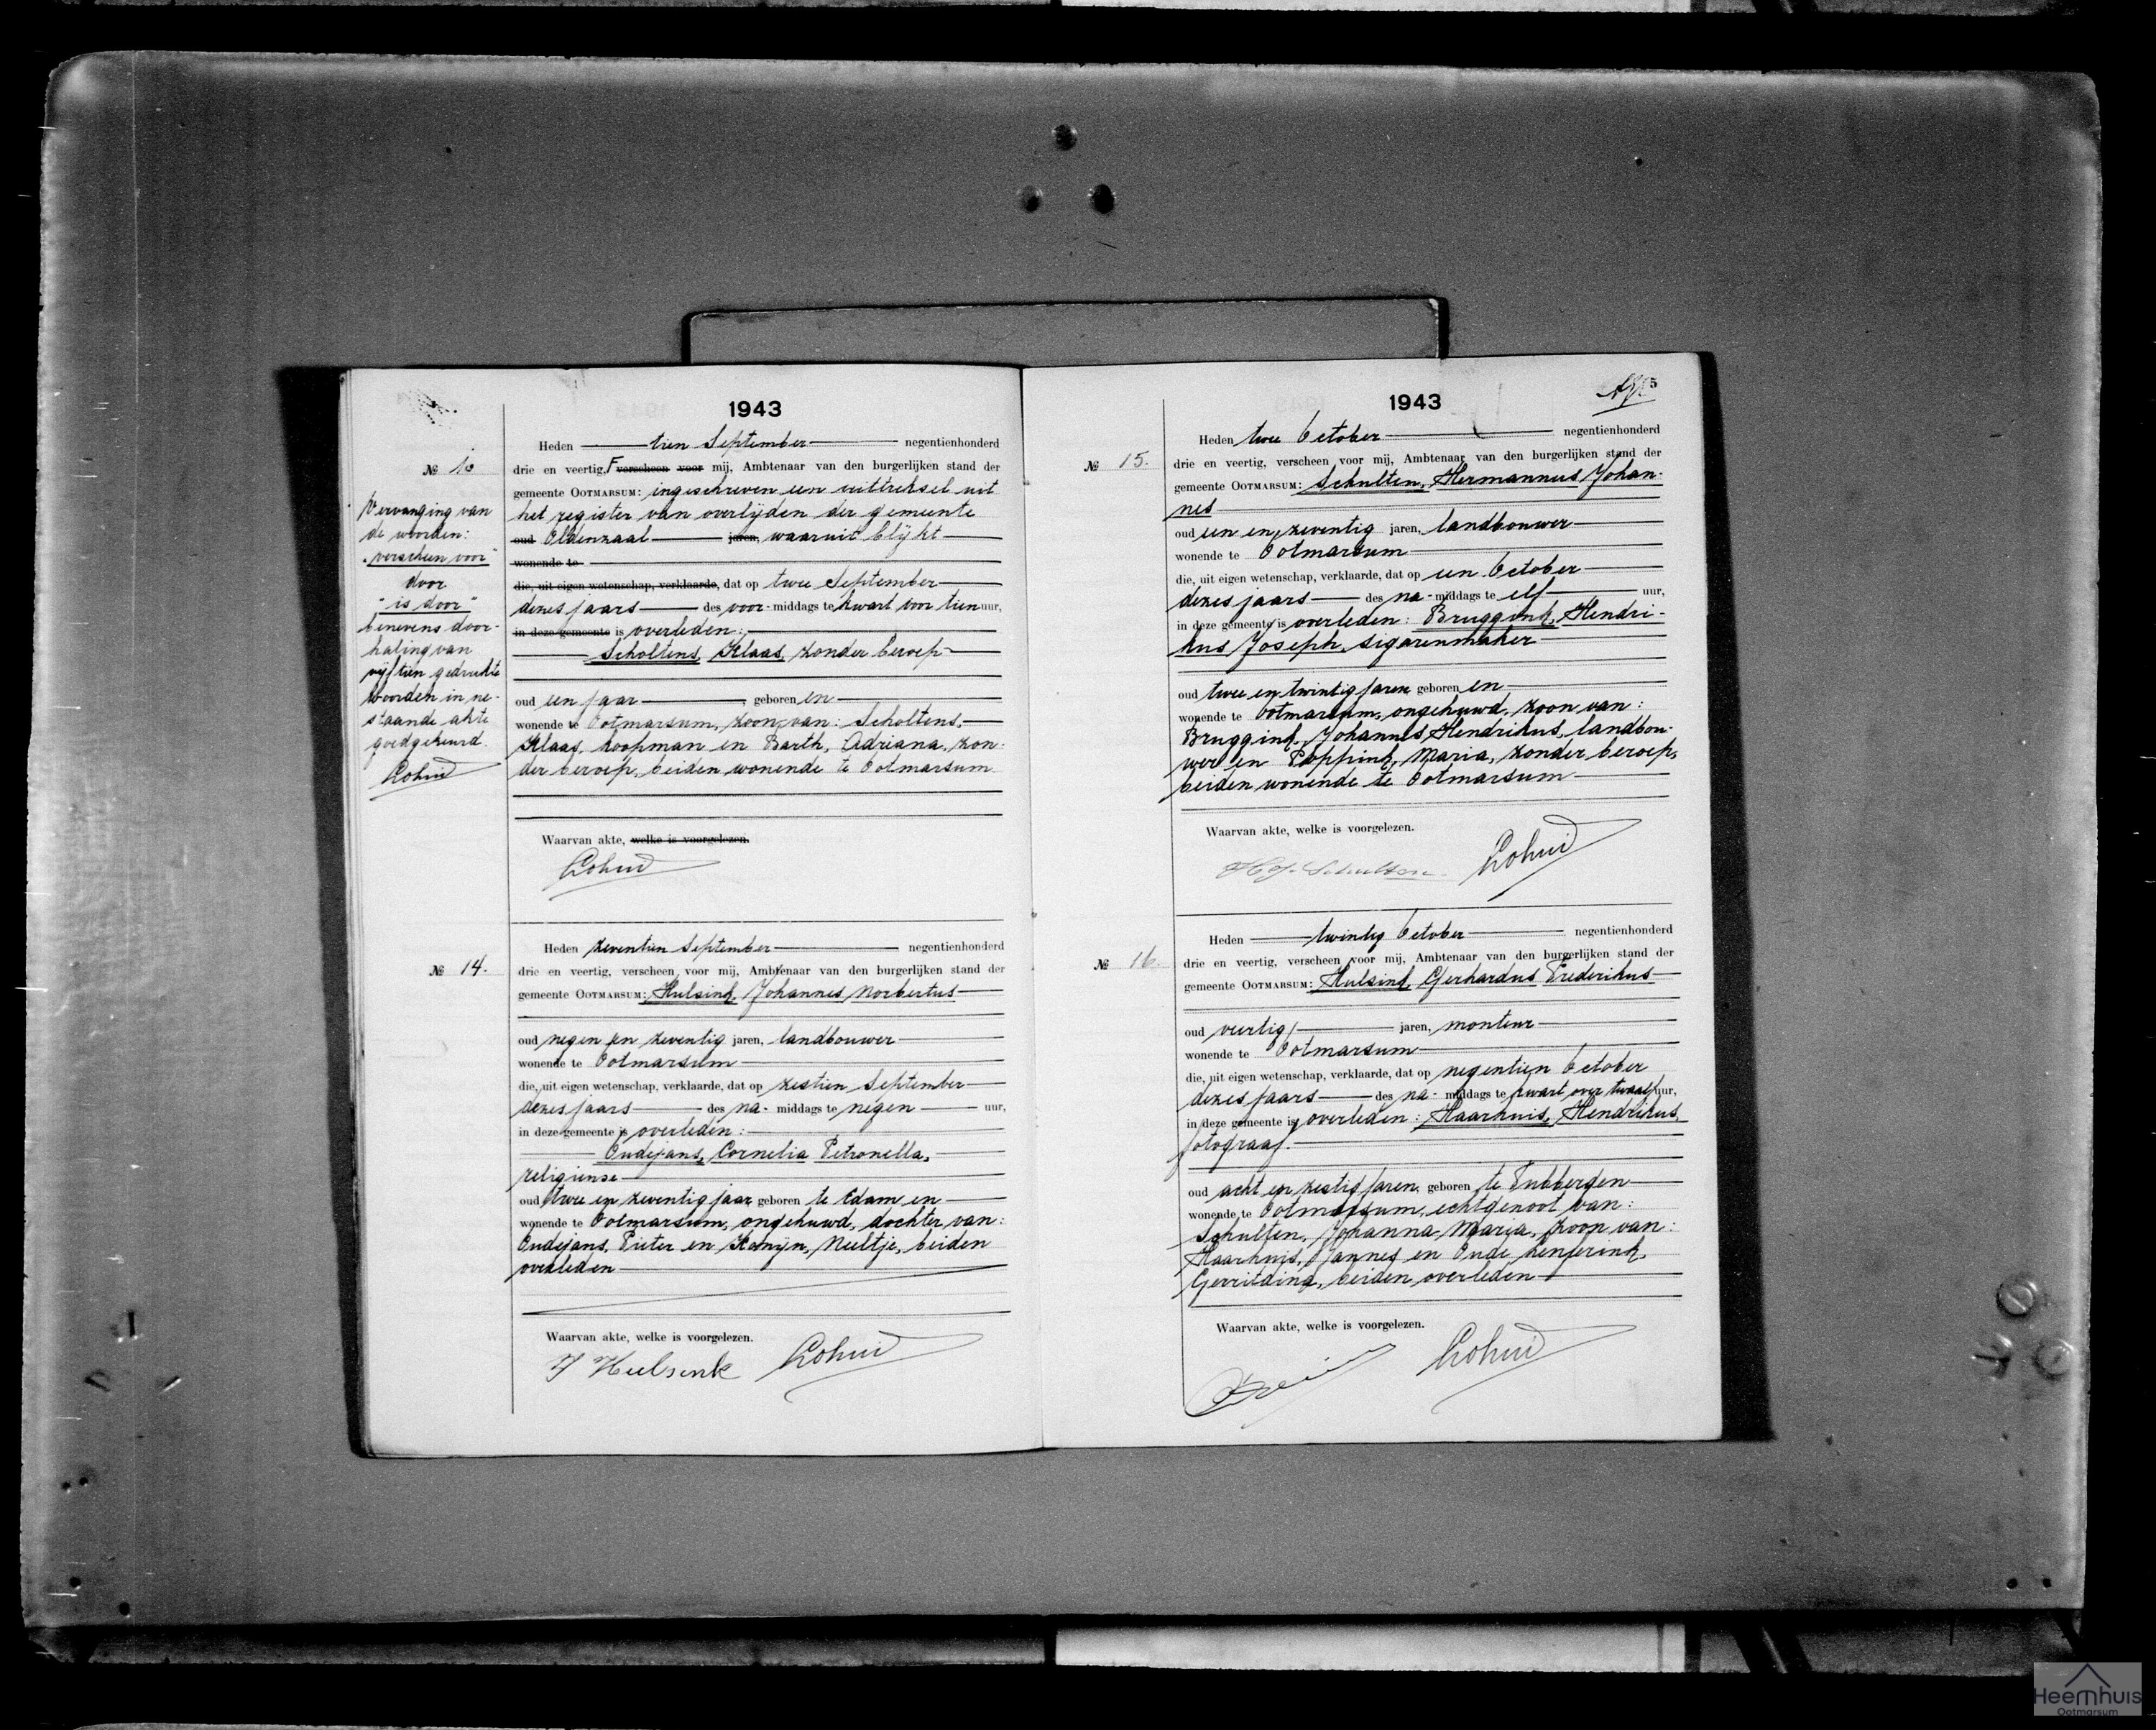 1943
Heden tien September negentienhonderd
№
drie en veertig, verscheen voor mij, Ambtenaar van den burgerlijken stand der
gemeente OOTMARSUM: ingeschreven een uittreksel uit
het register van overlijden der gemeente
oud Oldenzaal jaren, waaruit blijkt
wonende te
die, uit eigen wetenschap, verklaarde, dat op twee September
dezes jaars des voor-middags te kwart voor tien uur,
in deze gemeente is overleden:
Scholtens, Klaas, zonder beroep
oud een jaar, geboren en
wonende te Ootmarsum, zoon van: Scholtens,
Klaas, koopman en Barth, Adriana, zon-
der beroep, beiden wonende te Ootmarsum
Waarvan akte, welke is voorgelezen.
Vervanging van
de woorden:
"verscheen voor"
door
"is door"
benevens door-
haling van
vijftien gedrukte
woorden in ne-
staande akte
goedgekeurd.
Heden zeventien September negentienhonderd
№ 14.
drie en veertig, verscheen voor mij, Ambtenaar van den burgerlijken stand der
gemeente OOTMARSUM: Hulsink, Johannes Norbertus
oud negen en zeventig jaren, landbouwer
wonende te Ootmarsum
die, uit eigen wetenschap, verklaarde, dat op zestien September
dezes jaars des na-middags te negen uur,
in deze gemeente is overleden:
Oudejans, Cornelia Petronella,
religieuse
oud twee en zeventig jaar geboren te Edam en
wonende te Ootmarsum, ongehuwd, dochter van:
Oudejans, Pieter en Konijn, Neeltje, beiden
overleden
Waarvan akte, welke is voorgelezen.
J Hulsink
1943
5
Heden twee October negentienhonderd
№ 15.
drie en veertig, verscheen voor mij, Ambtenaar van den burgerlijken stand der
gemeente OOTMARSUM: Schulten, Hermannus Johan-
nes
oud een en zeventig jaren, landbouwer
wonende te Ootmarsum
die, uit eigen wetenschap, verklaarde, dat op een October
dezes jaars des na-middags te elf uur,
in deze gemeente is overleden: Bruggink, Hendri-
kus Joseph, sigarenmaker
oud twee en twintig jaren geboren en
wonende te Ootmarsum, ongehuwd, zoon van:
Bruggink, Johannes Hendrikus, landbou-
wer en Poppink, Maria, zonder beroep,
beiden wonende te Ootmarsum
Waarvan akte, welke is voorgelezen.
H J. Schulten
Heden twintig October negentienhonderd
№ 16.
drie en veertig, verscheen voor mij, Ambtenaar van den burgerlijken stand der
gemeente OOTMARSUM: Hulsink, Gerhardus Frederikus
oud veertig jaren, monteur
wonende te Ootmarsum
die, uit eigen wetenschap, verklaarde, dat op negentien October
dezes jaars des na-middags te kwart over twaalf uur,
in deze gemeente is overleden: Haarhuis, Hendrikus,
fotograaf.
oud acht en zestig jaren, geboren te Tubbergen
wonende te Ootmarsum, echtgenoot van:
Schulten, Johanna Maria, zoon van:
Haarhuis, Jannes en Oude
Gerritdina, beiden overleden
Waarvan akte, welke is voorgelezen.
Heemhuis
Ootmarsum